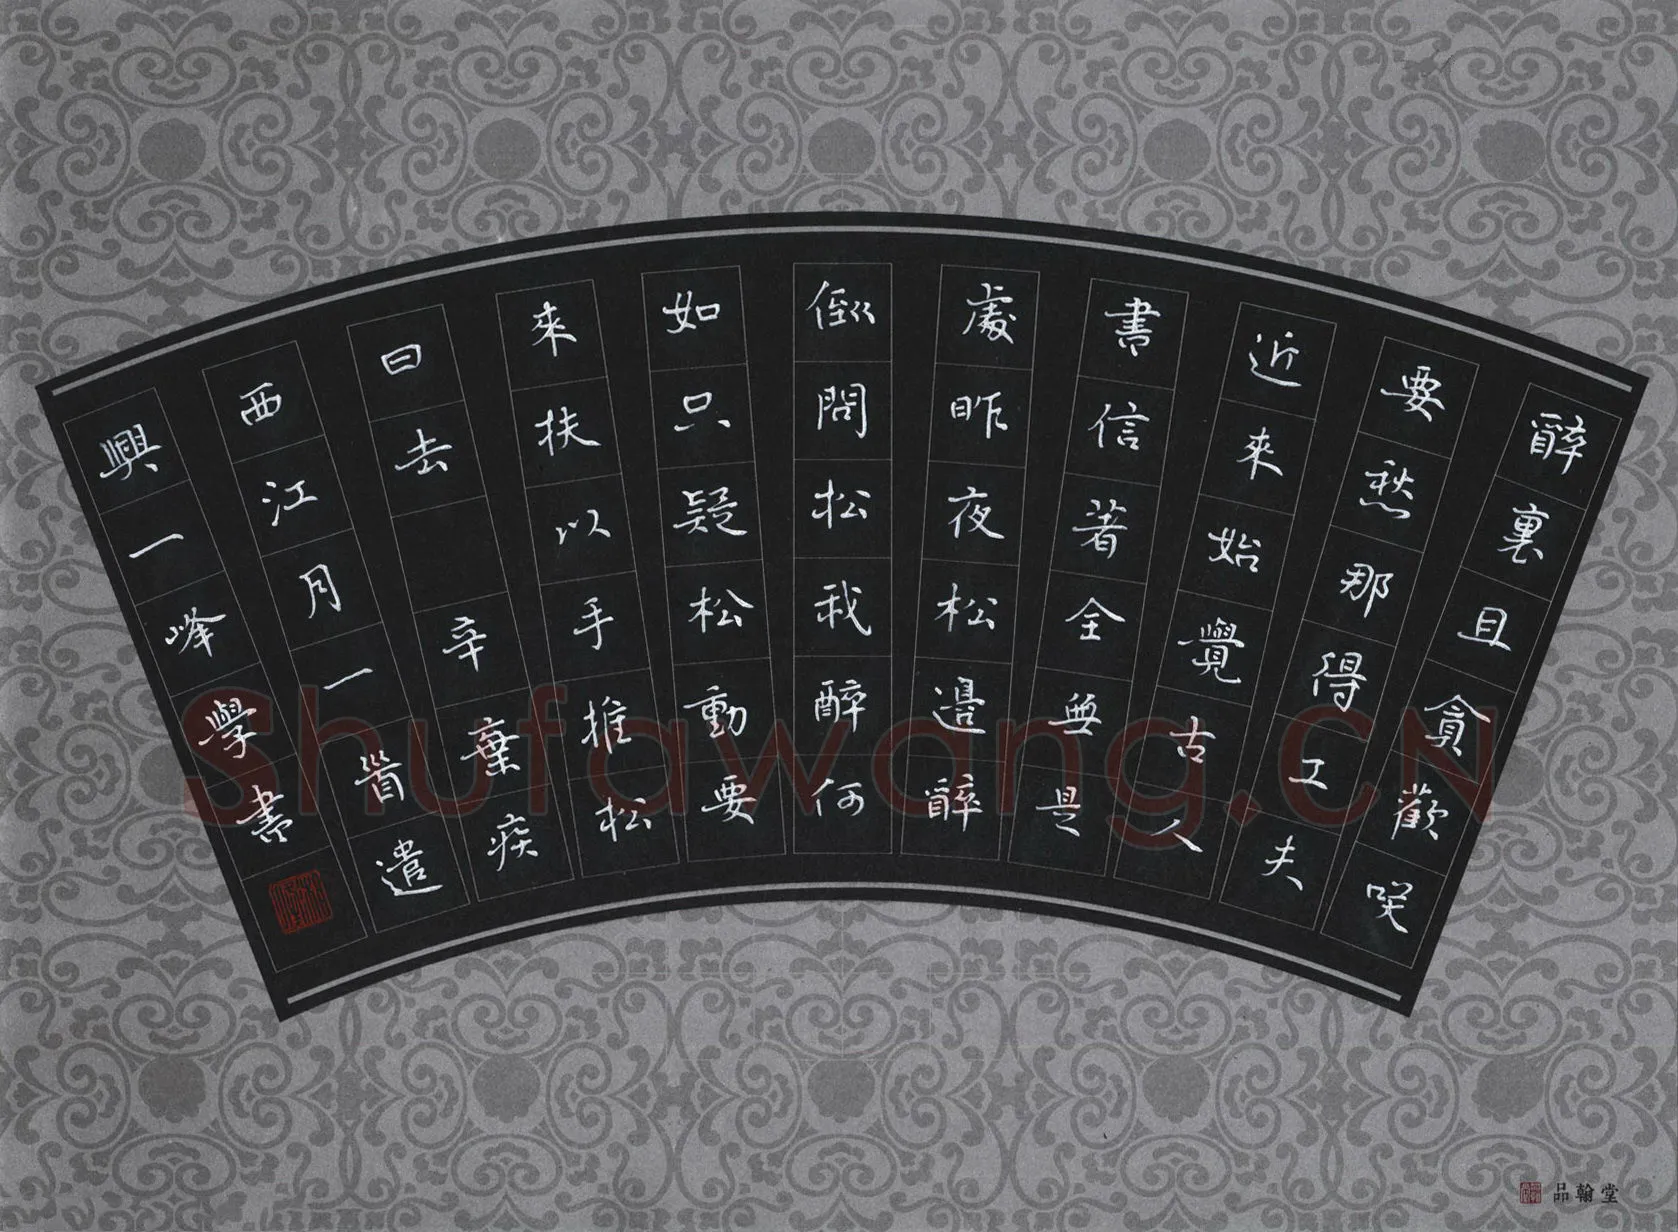 醉裏且貪歡咲
要愁那得工夫
近來始覺古人
書信著全無是
處昨夜松邊醉
倒問松我醉何
如只疑松動要
來扶以手推松
曰去 辛棄疾
西江月一首遣
興一峰學書
Shufawang.CN
品翰堂